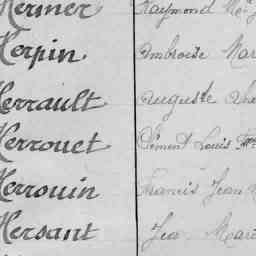 Hermer Raymond
Herpin Ambroise
Herrault Auguste
Herrouet Clément Louis
Herrouin Francis Jean
Hersant Jean Marie